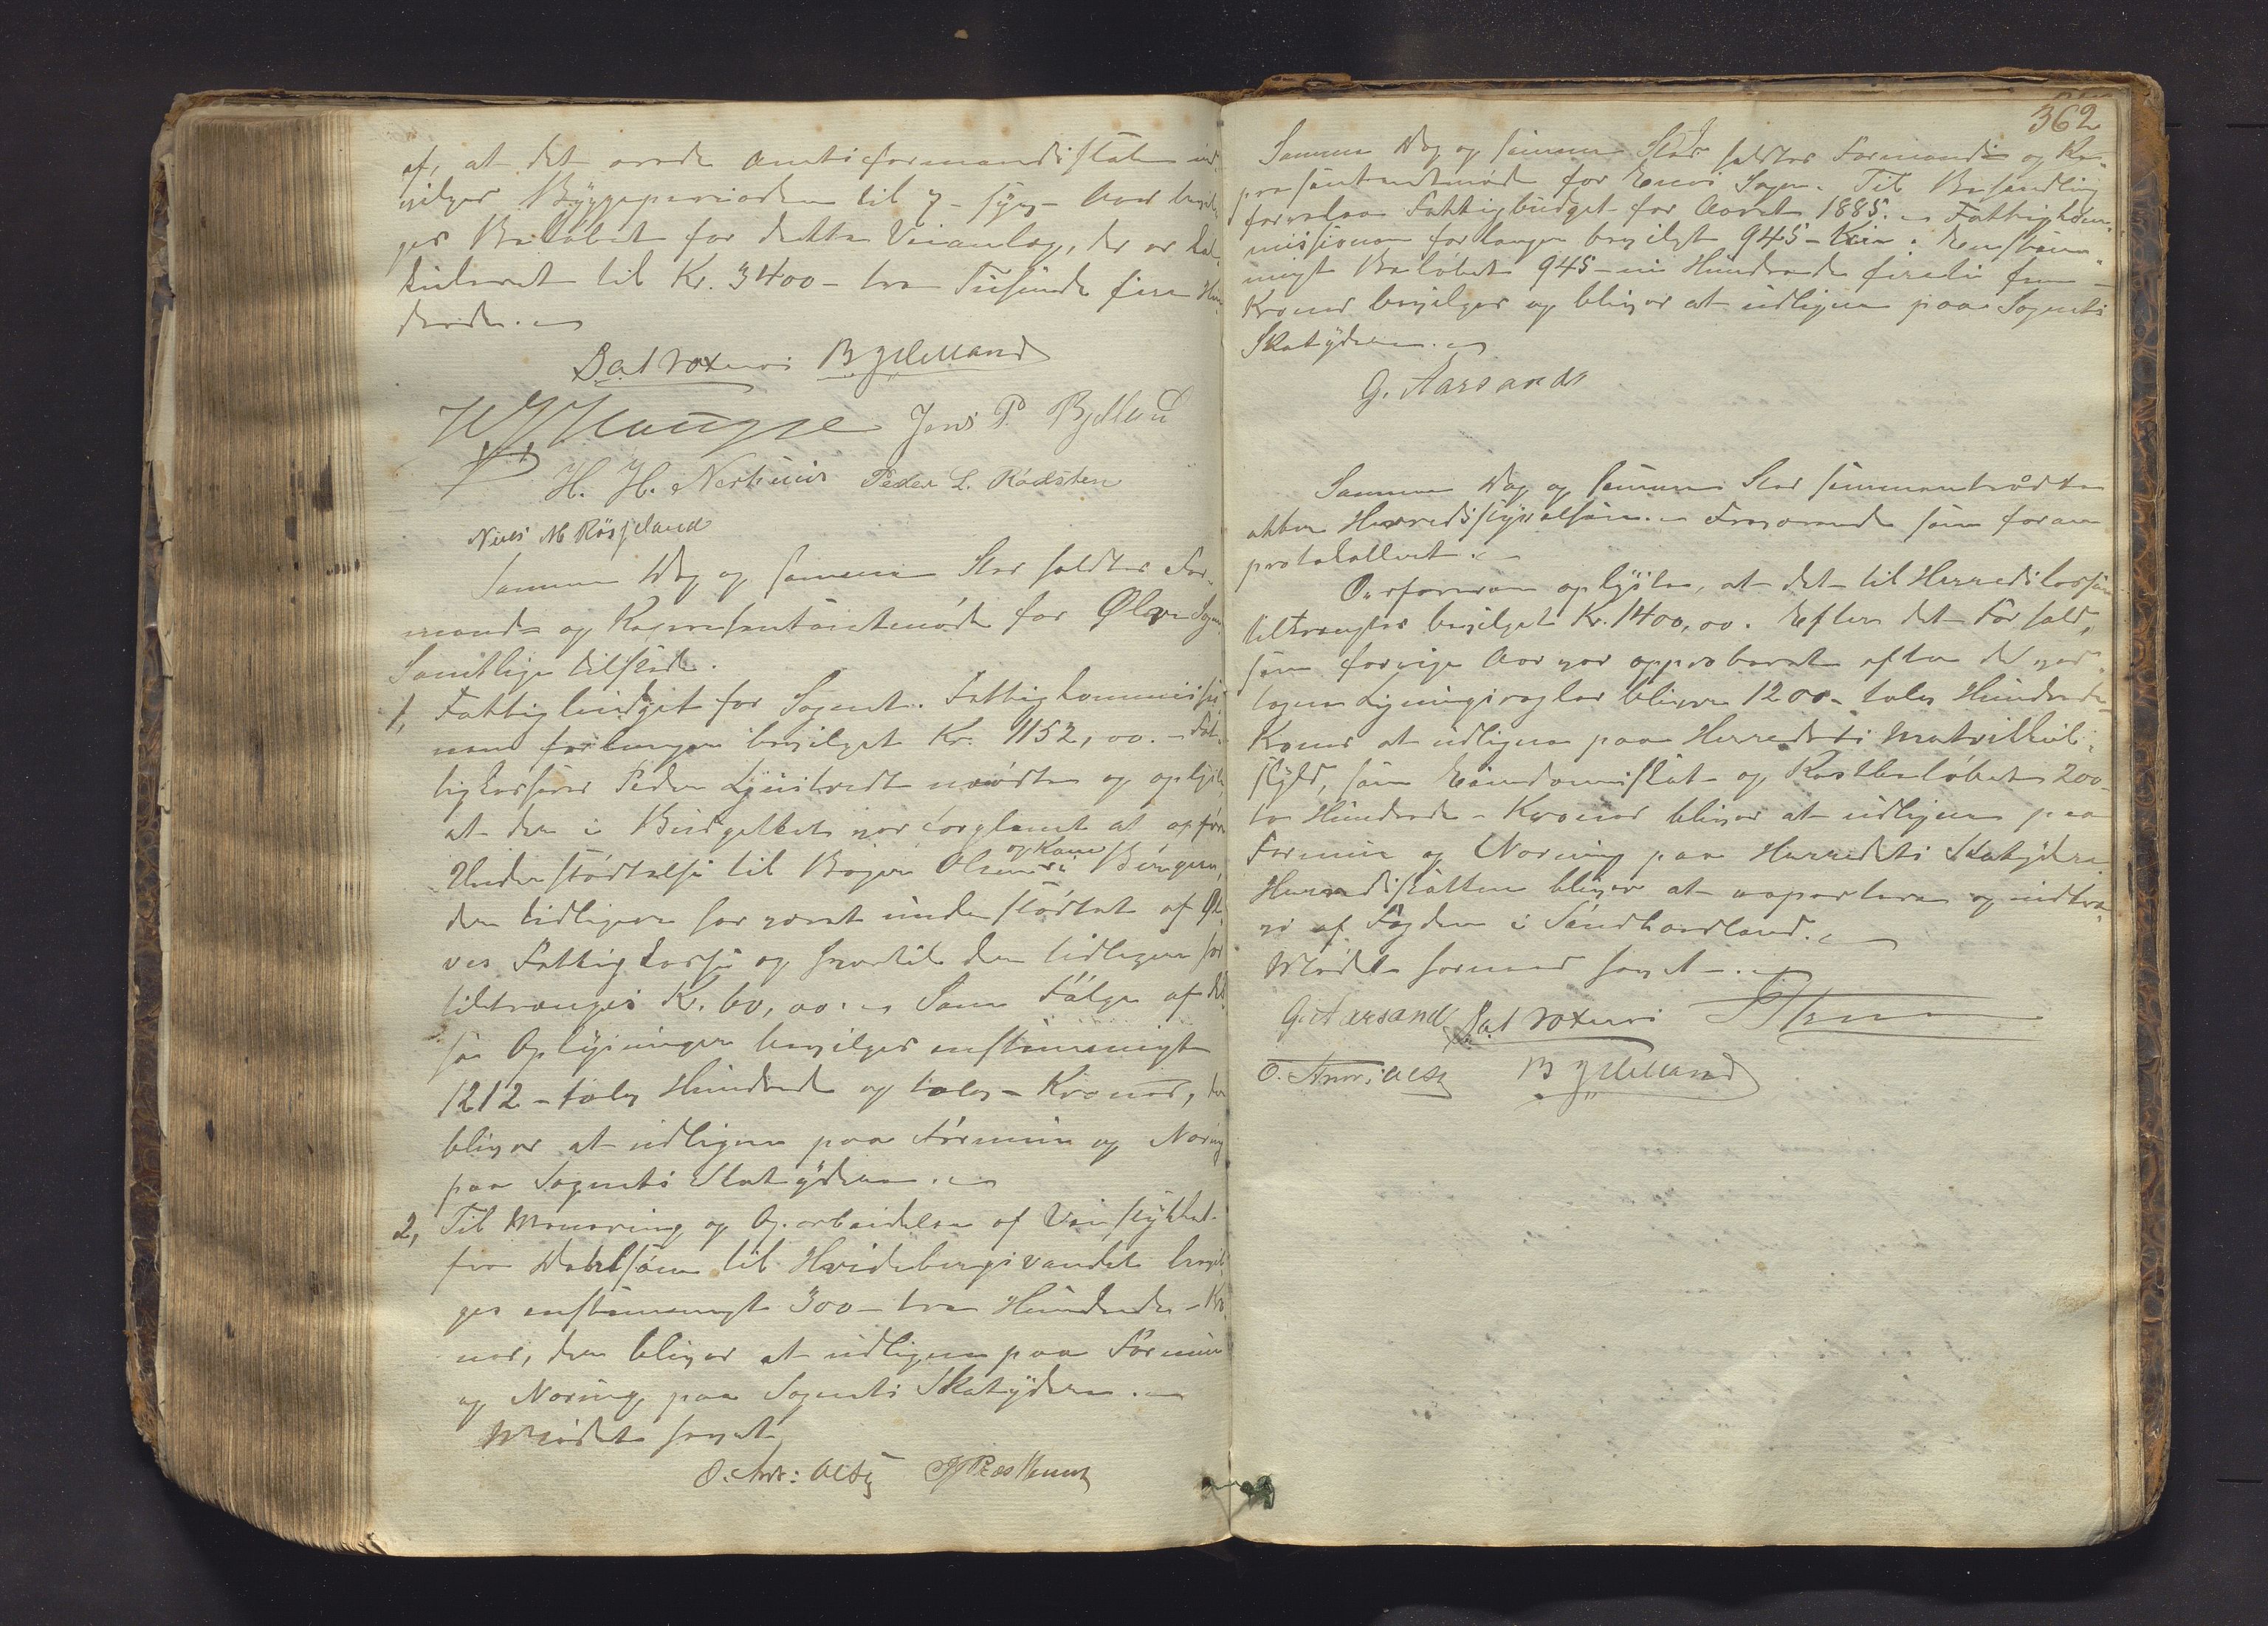 af, at det ærede Amtsformandskab ind-
vilger Byggeperioden til 7 - syv - Aar bevil-
ges Beløbet for dette Veianlæg, der er kal-
kuleret til Kr. 3400 - tre Tusinde fire Hun-
drede.
B Jelland
Jens P. Bjelland
H. H. Nerheim Peder L. Rådsten
Samme Dag og samme Sted holdtes For-
mands og Repræsentantmøde for Ølve Sogn.
Samtlige tilstede.
1, Fattigbudget for Sognet. Fattigkommissio-
nen forlanger bevilget Kr. 1152,00. - Fat-
tigkasserer Peder Ljustvedt mødte og oplyste
at der i Budgettet var forglemt at opføre
Understøttelse til Børge Olsen og Kone i Bergen,
der tidligere har været understøttet af Øl-
ves Fattigkasse og hvortil der tidligere har
tiltrænges Kr. 60,00. Som Følge af dis-
se Oplysninger bevilges enstemmigt
1212 - tolv Hundrede og tolv - Kroner, der
bliver at udligne paa Formue og Næring
paa Sognets Skatydere.
2, Til Minering og Oparbeidelse af Veistykket
fra til Hvidebergsvandet bevil-
ges enstemmigt 300 - tre Hundrede - Kro-
ner, der bliver at udligne paa Formue
og Næring paa Sognets Skatydere.
Mødet hævet
362
Samme Dag og samme Sted holdtes Formands og Re-
præsentantmøde for Enæs Sogn. Til Behandling
forelaa Fattigbudget for Aaret 1885. Fattigkom-
missionen forlanger bevilget 945 - Kr. Enstem-
migt Beløbet 945 - ni Hundrede firti fem -
Kroner bevilges og bliver at udligne paa Sognets
Skatydere.
G. Aarsand
Samme Dag og samme Sted sammentraadte
atter Herredsstyrelsen. Fraværende som foran
protokolleret.
Ordføreren oplyste, at det til Herredskassen
tiltrænges bevilget Kr. 1400,00. Efter det Forhold,
som forrige Aar var approberet efter de ved-
tagne Ligningsregler bliver 1200 - tolv Hundrede -
Kroner at udligne paa Herredets Matrikkul-
skyld, som Eiendomsskat og Restbeløbet 200 -
to Hundrede - Kroner bliver at udligne paa
Formue og Næring paa Herredets Skatydere
Herredsskatten bliver at repartere og inddri-
ves af Fogden i Søndhordland.
Mødet hermed hævet.
G. Aarsand
B Jelland